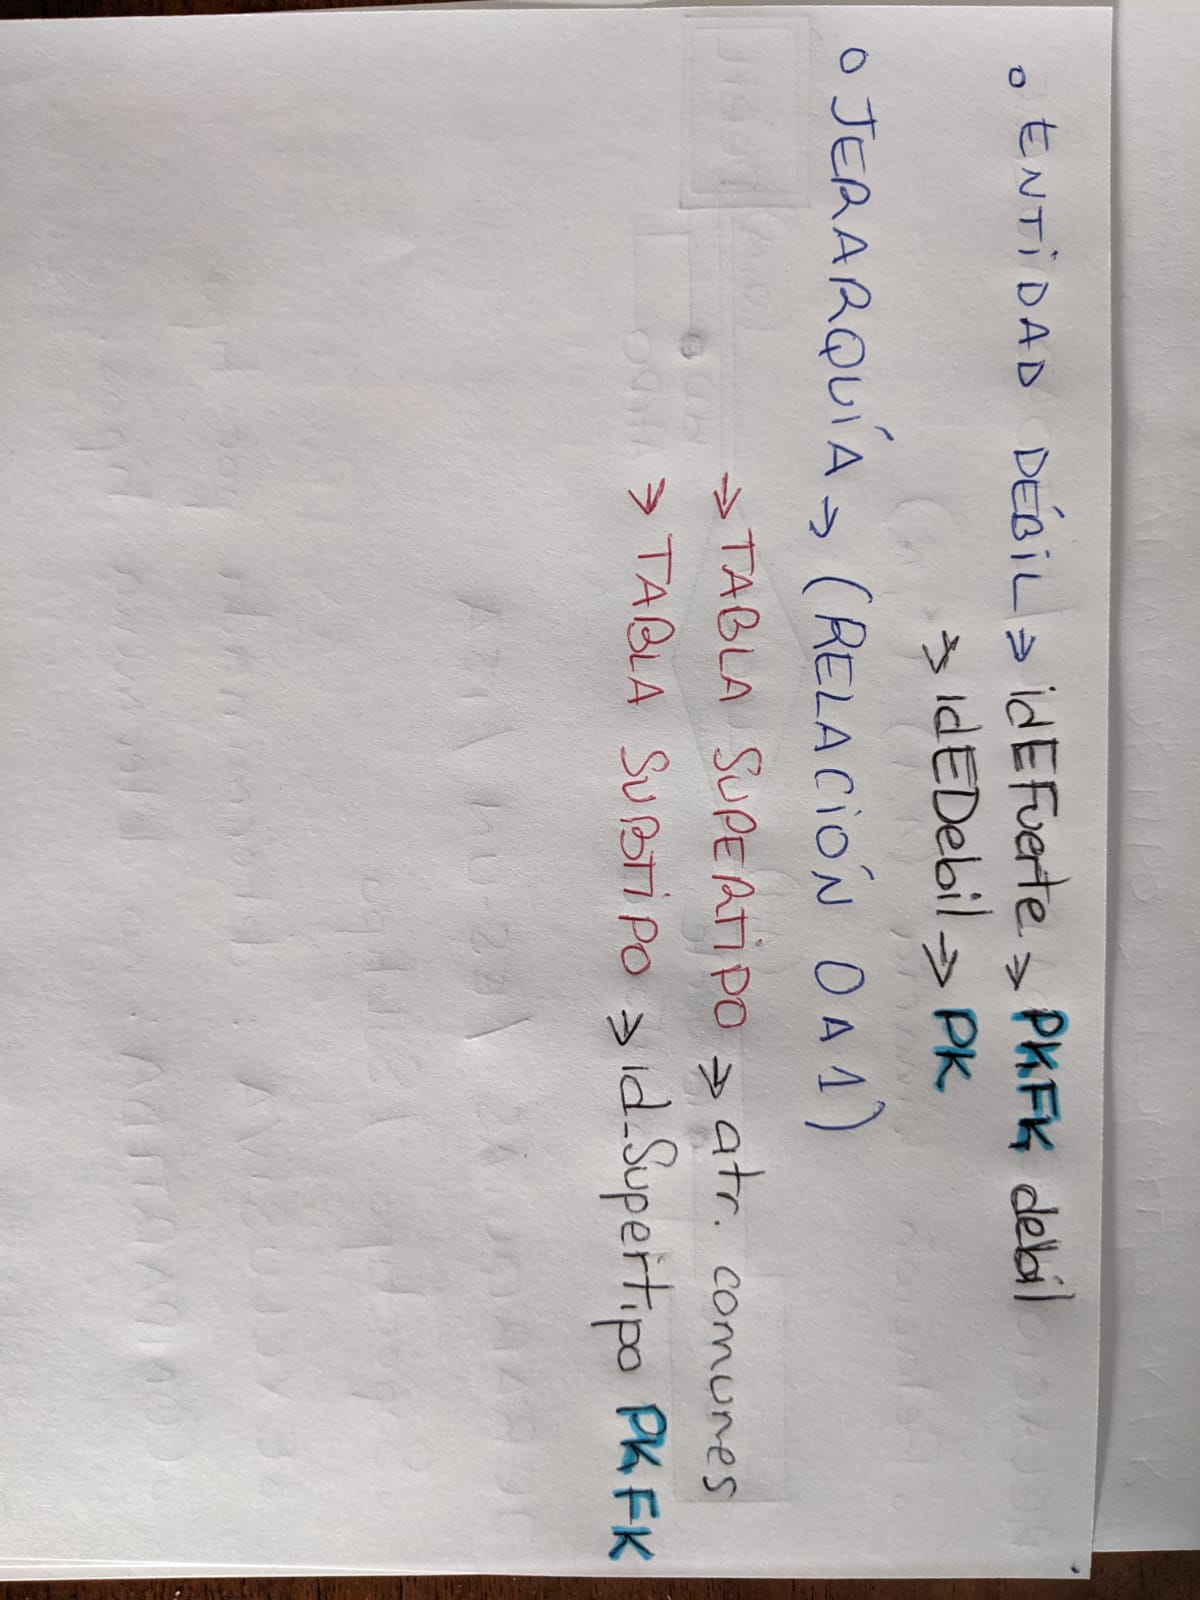 o ENTIDAD DÉBIL → idEFuerte → PKFK debil
→ IdEDebil → PK
o JERARQUÍA → (RELACIÓN 0 A 1)
→ TABLA SUPERTIPO → atr. comunes
→ TABLA SUBTIPO → id_Supertipo PK FK